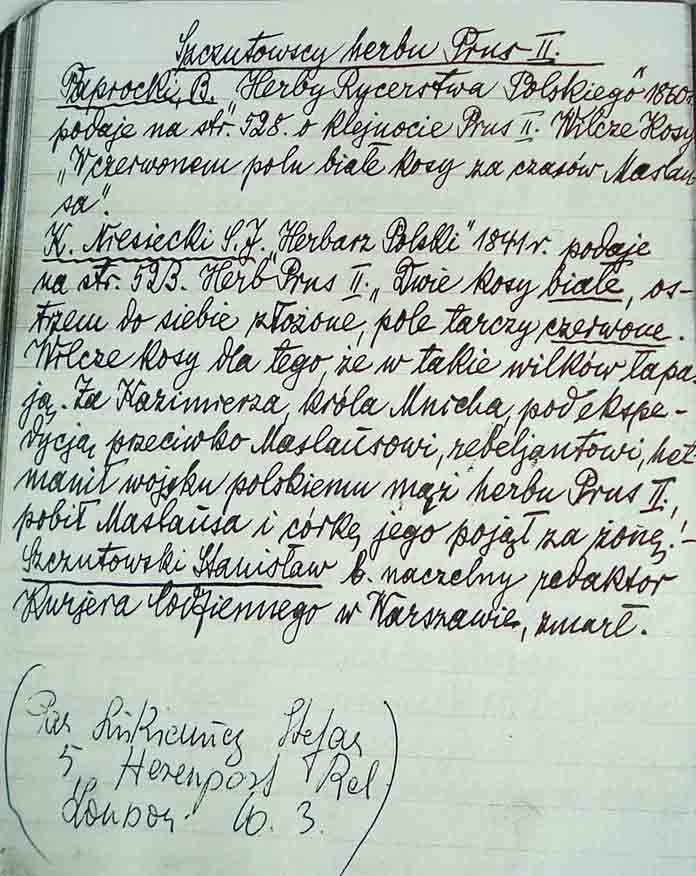 Szczutowscy herbu Prus II.
Paprocki, B. "Herby Rycerstwa Polskiego" 1860r
podaje na str. 528. o klejnocie Prus II. Wilcze Kosy
"W czerwonem polu białe kosy za czasów Masłau-
sa".
K. Niesiecki S.J. "Herbarz Polski" 1841 r. podaje
na str. 523. Herb Prus II. "Dwie kosy białe, os-
trzem do siebie złożone, pole tarczy czerwone.
Wilcze kosy dla tego, że w takie wilków łapa-
ją. Za Kazimierza, króla Mnicha, pod ekspe-
dycją przeciwko Masłausowi, rebeljantowi, het-
manił wojsku polskiemu mąż herbu Prus II.,
pobił Masłausa i córkę jego pojął za żonę.!-
Szczutowski Stanisław b. naczelny redaktor
Kurjera Codziennego w Warszawie, zmarł.
(Stefan
5,
London W. 3.)